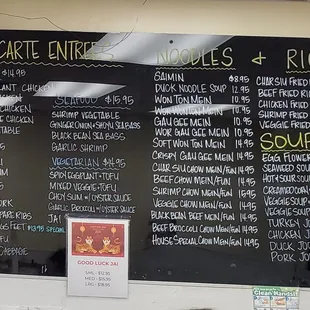 CARTE ENTREE
$14.95
PLANT CHICKEN
CHICKEN
CHICKEN
SEAFOOD $15.95
SHRIMP VEGETABLE
GINGER ONION + SHOYU SEA BASS
BLACK BEAN SEA BASS
GARLIC SHRIMP
VEGETARIAN $14.95
SPICY EGGPLANT + TOFU
MIXED VEGGIE + TOFU
CHOY SUM w/ OYSTER SAUCE
GARLIC BROCCOLI w/ OYSTER SAUCE
JAI
PORK
SPARE RIBS
$13.95 SPECIAL
CABBAGE
GOOD LUCK JAI
NOODLES & RI
SAIMIN $8.95
DUCK NOODLE SOUP 12.95
WON TON MEIN 10.95
WON WONTON MEIN 10.95
GAU GEE MEIN 10.95
WOR GAU GEE MEIN 10.95
SOFT WON TON MEIN 10.95
CRISPY GAU GEE MEIN 14.95
CHAR SIU CHOW MEIN/FUN 14.95
BEEF CHOW MEIN/FUN 14.95
SHRIMP CHOW MEIN/FUN 15.95
VEGGIE CHOW MEIN/FUN 14.95
BLACK BEAN BEEF MEIN/FUN 14.95
BEEF BROCCOLI CHOW MEIN/FUN 14.95
HOUSE SPECIAL CHOW MEIN/FUN 14.95
CHAR SIU FRIED
BEEF FRIED RIC
CHICKEN FRIED
SHRIMP FRIED
VEGGIE FRIED
SOUP
EGG FLOWER
SEAWEED SOUP
HOT + SOUR SOUP
CREAMED CORN
VEGGIE SOUP
VEGGIE SOUP
TURKEY J
CHICKEN J
DUCK JOO
PORK JO
Clean Hands!!